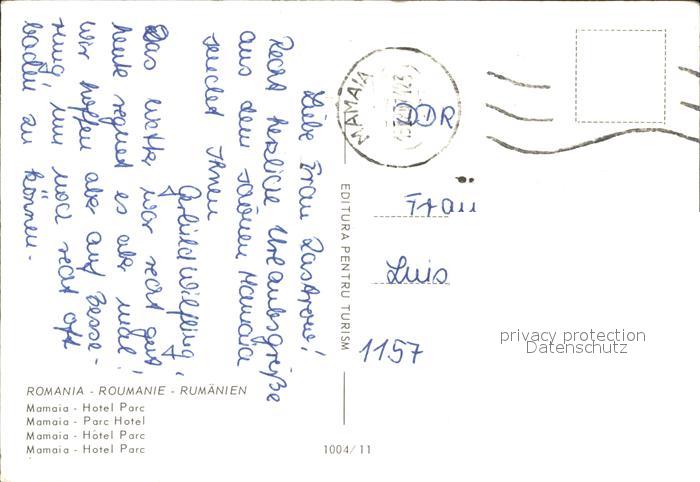 Liebe Frau Zastrow!
Recht herzliche Urlaubsgrüße
aus dem schönen Mamaia
sendet Ihnen
Das Wetter war recht gut,
heute regnet es aber mal!
wir hoffen aber auf Besse-
rung, um noch recht oft
baden zu können.
MAMAIA
DDR
Frau
Luis
1157
privacy protection
Datenschutz
EDITURA PENTRU TURISM
ROMANIA - ROUMANIE - RUMÄNIEN
Mamaia - Hotel Parc
Mamaia - Parc Hotel
Mamaia - Hotel Parc
Mamaia - Hotel Parc
1004/11